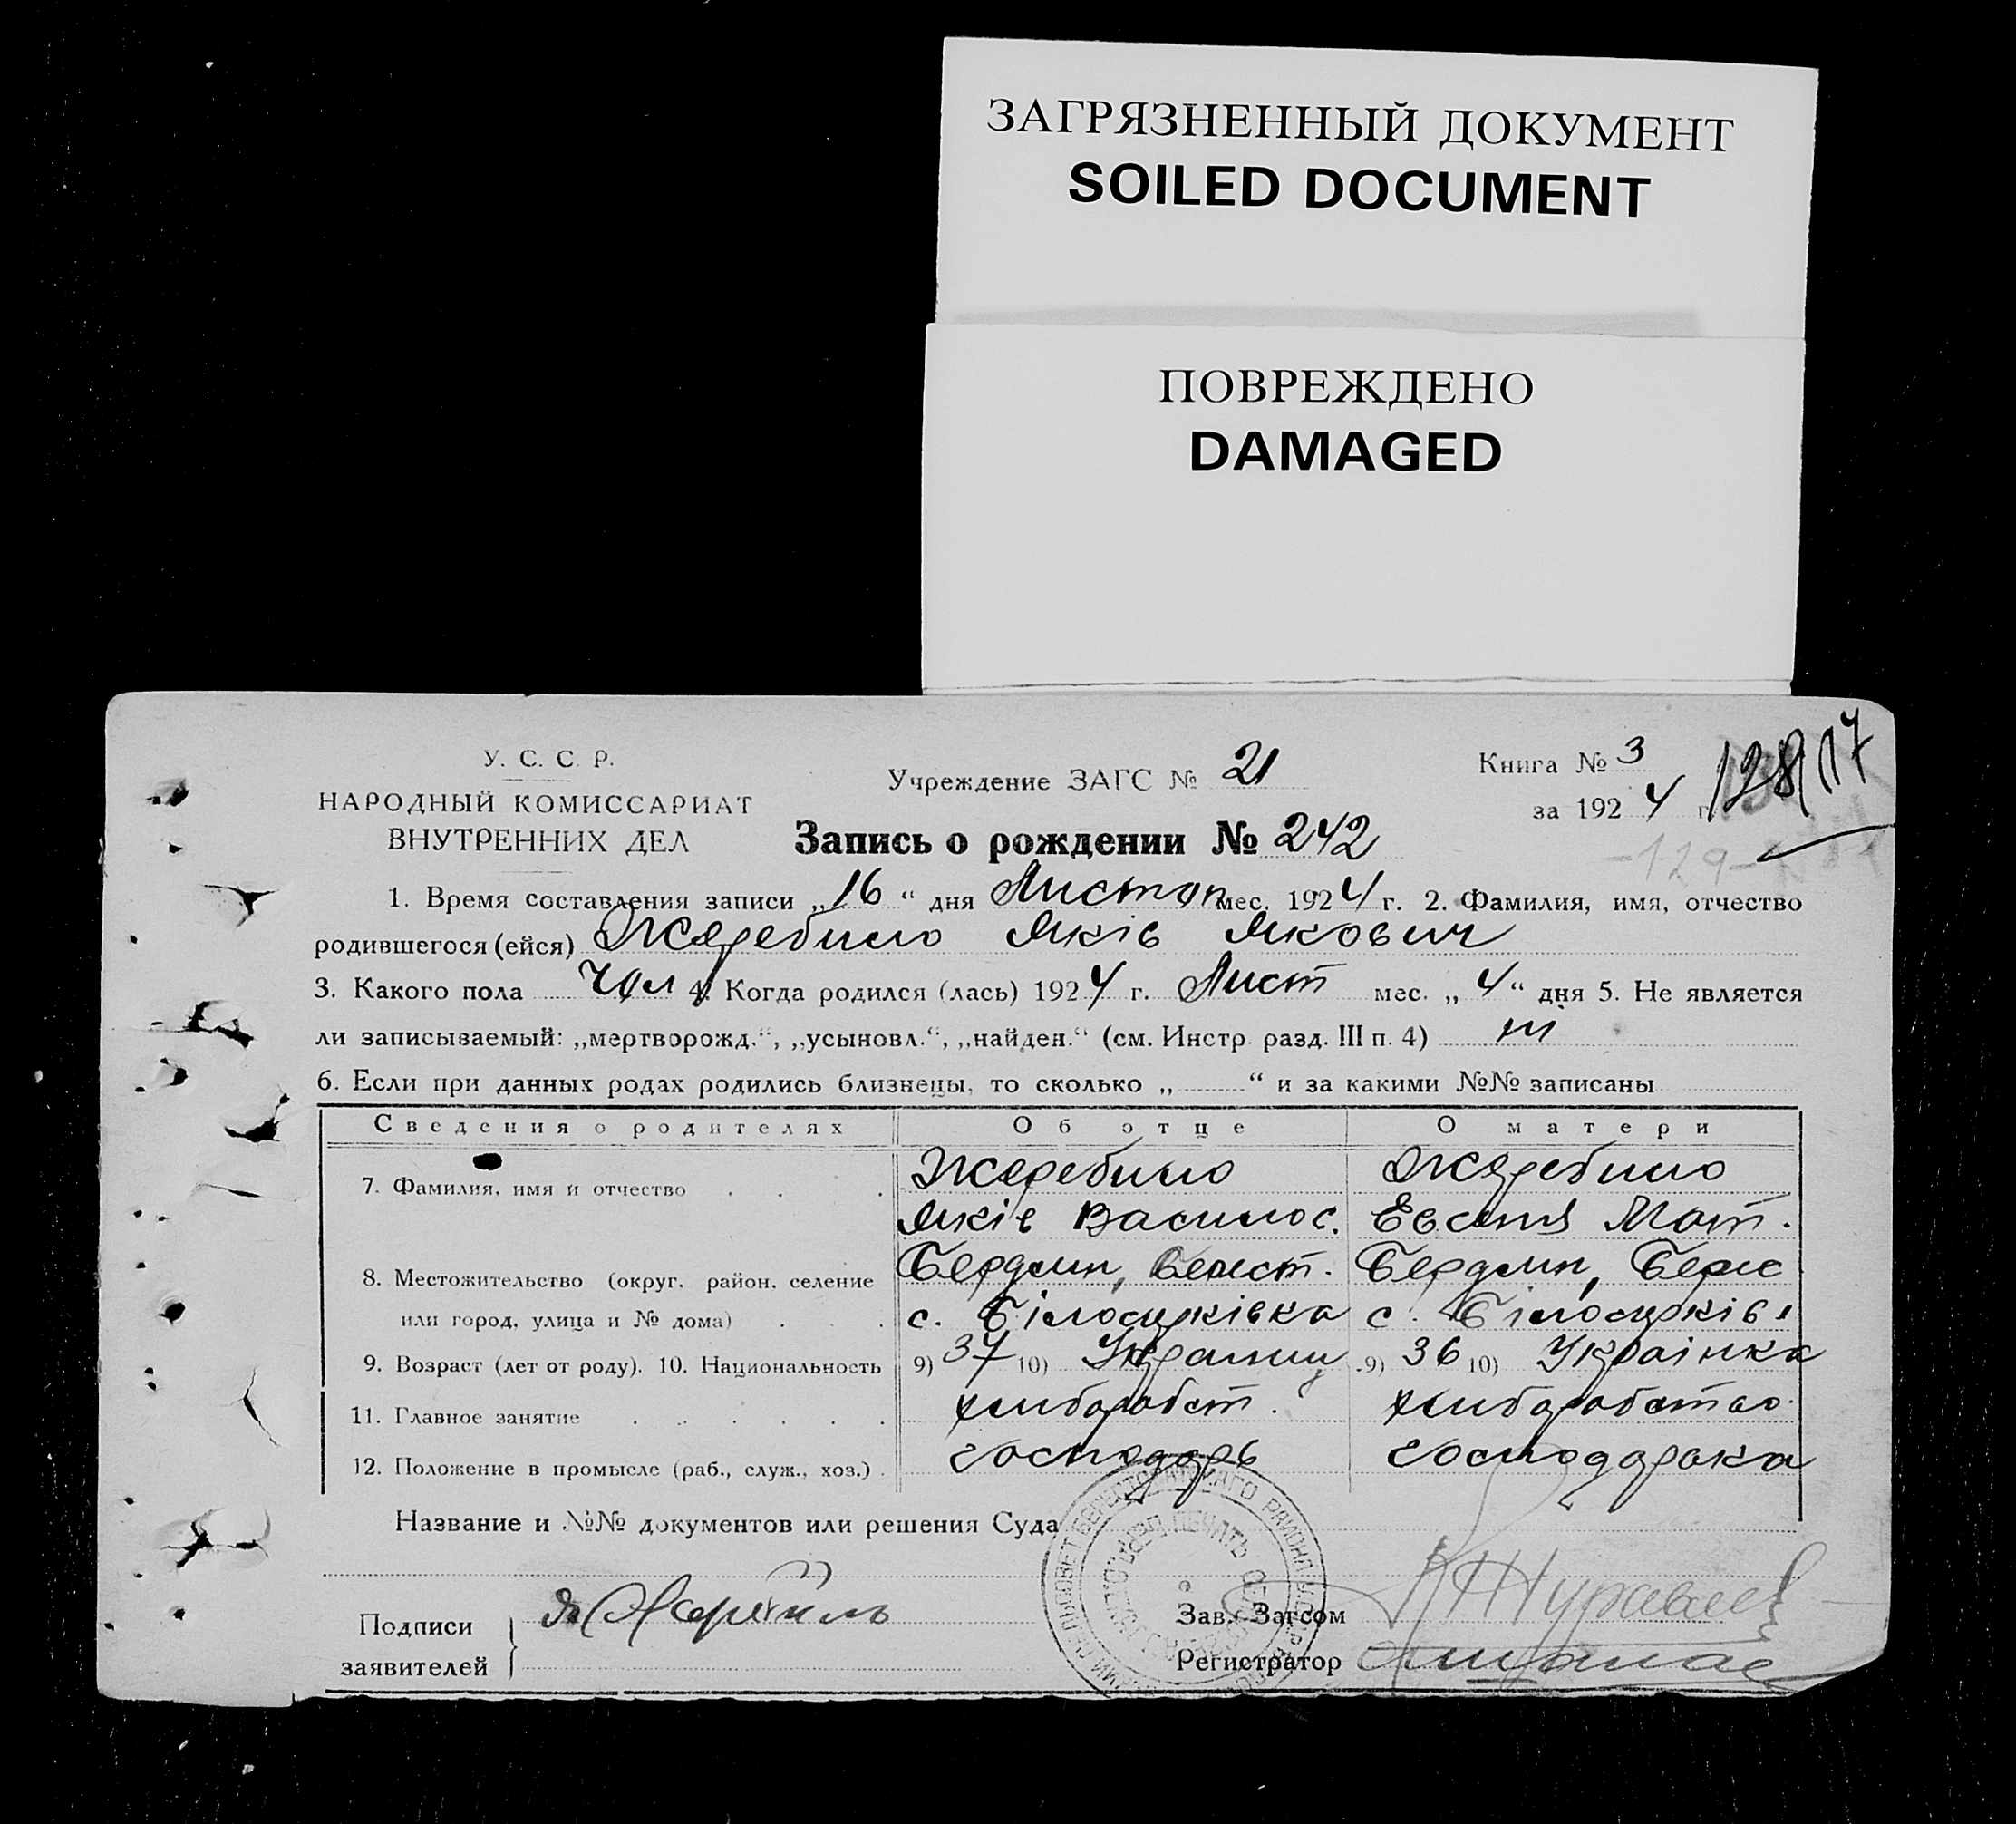 ЗАГРЯЗНЕННЫЙ ДОКУМЕНТ
SOILED DOCUMENT
ПОВРЕЖДЕНО
DAMAGED
У. С. С. Р.
НАРОДНЫЙ КОМИССАРИАТ
ВНУТРЕННИХ ДЕЛ
Учреждение ЗАГС № 21
Книга № 3
за 1924 г.
128 117
-129-
Запись о рождении № 242
1. Время составления записи „16“ дня Листоп мес. 1924 г. 2. Фамилия, имя, отчество
родившегося (ейся) Жеребило Яків Якович
3. Какого пола чол 4. Когда родился (лась) 1924 г. Лист мес. „4“ дня 5. Не является
ли записываемый: „мертворожд.“, „усыновл.“, „найден.“ (см. Инстр. разд. III п. 4) ні
6. Если при данных родах родились близнецы, то сколько „ “ и за какими №№ записаны
Сведения о родителях Об отце О матери
7. Фамилия, имя и отчество Жеребило Жеребило
Яків Василос. Евгенія Мат.
8. Местожительство (округ, район, селение Бердян, Берест. Бердян, Бере
или город, улица и № дома) с. Білоцерківка с. Білоцерків
9. Возраст (лет от роду). 10. Национальность 9) 37 10) Украинц 9) 36 10) Українка
11. Главное занятие хлиборобст. хлиборобство
12. Положение в промысле (раб., служ., хоз.) господарь господарька
Название и №№ документов или решения Суда
Подписи
заявителей
Зав. Загсом
Регистратор